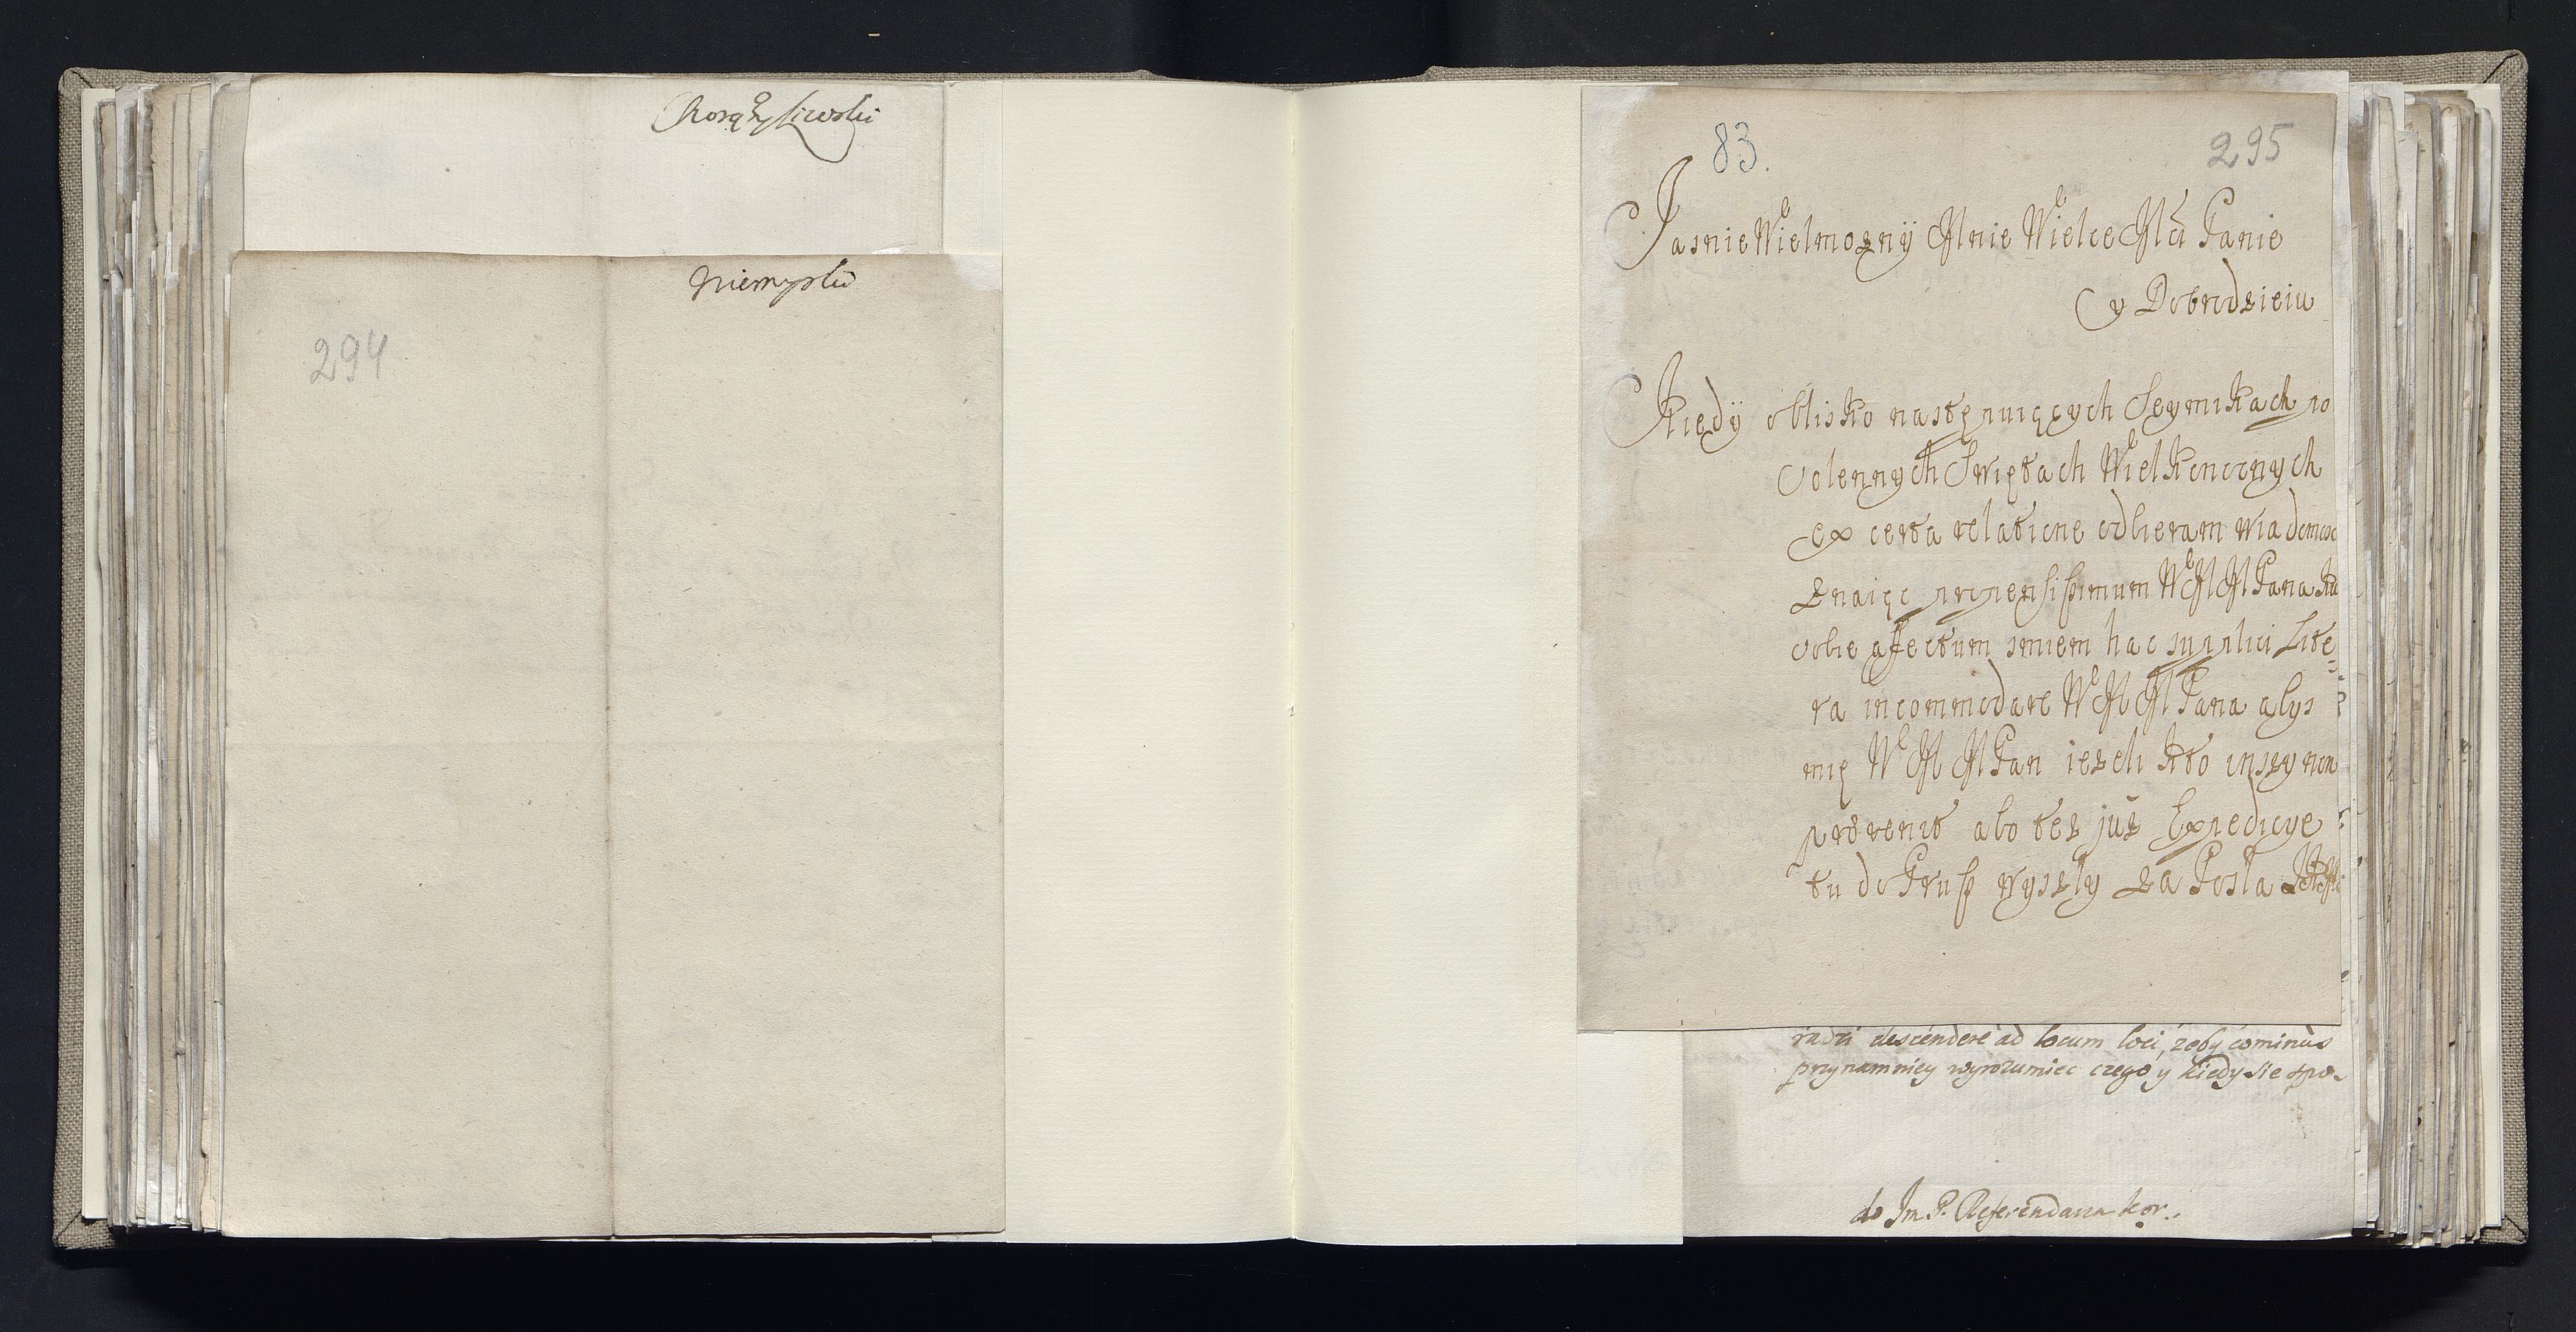 Chorąży Liwski
Niemyski
294
83.
295
Jasnie Wielmozny Mnie Wielce Mci Panie
y Dobrodzieiu
Kiedy o blisko następuiących Seymikach po
Solennych Swiętach Wielkonocnych
ex certa relatione odbieram wiadomosc
znaiąc propensissimum WMM Pana ku
sobie affectum smiem hac supplici Lite-
ra incommodare WMM Pana abys
mię WMM Pan iezeli kto inszy non
praevenit abo tez juz Expedicye
tu do Prus wyszly za Posla
radzi descendere ad locum loci, zeby cominus
przynamniey wyrozumiec czego y kiedy sie spo-
do Jm P. Referendarza kor.